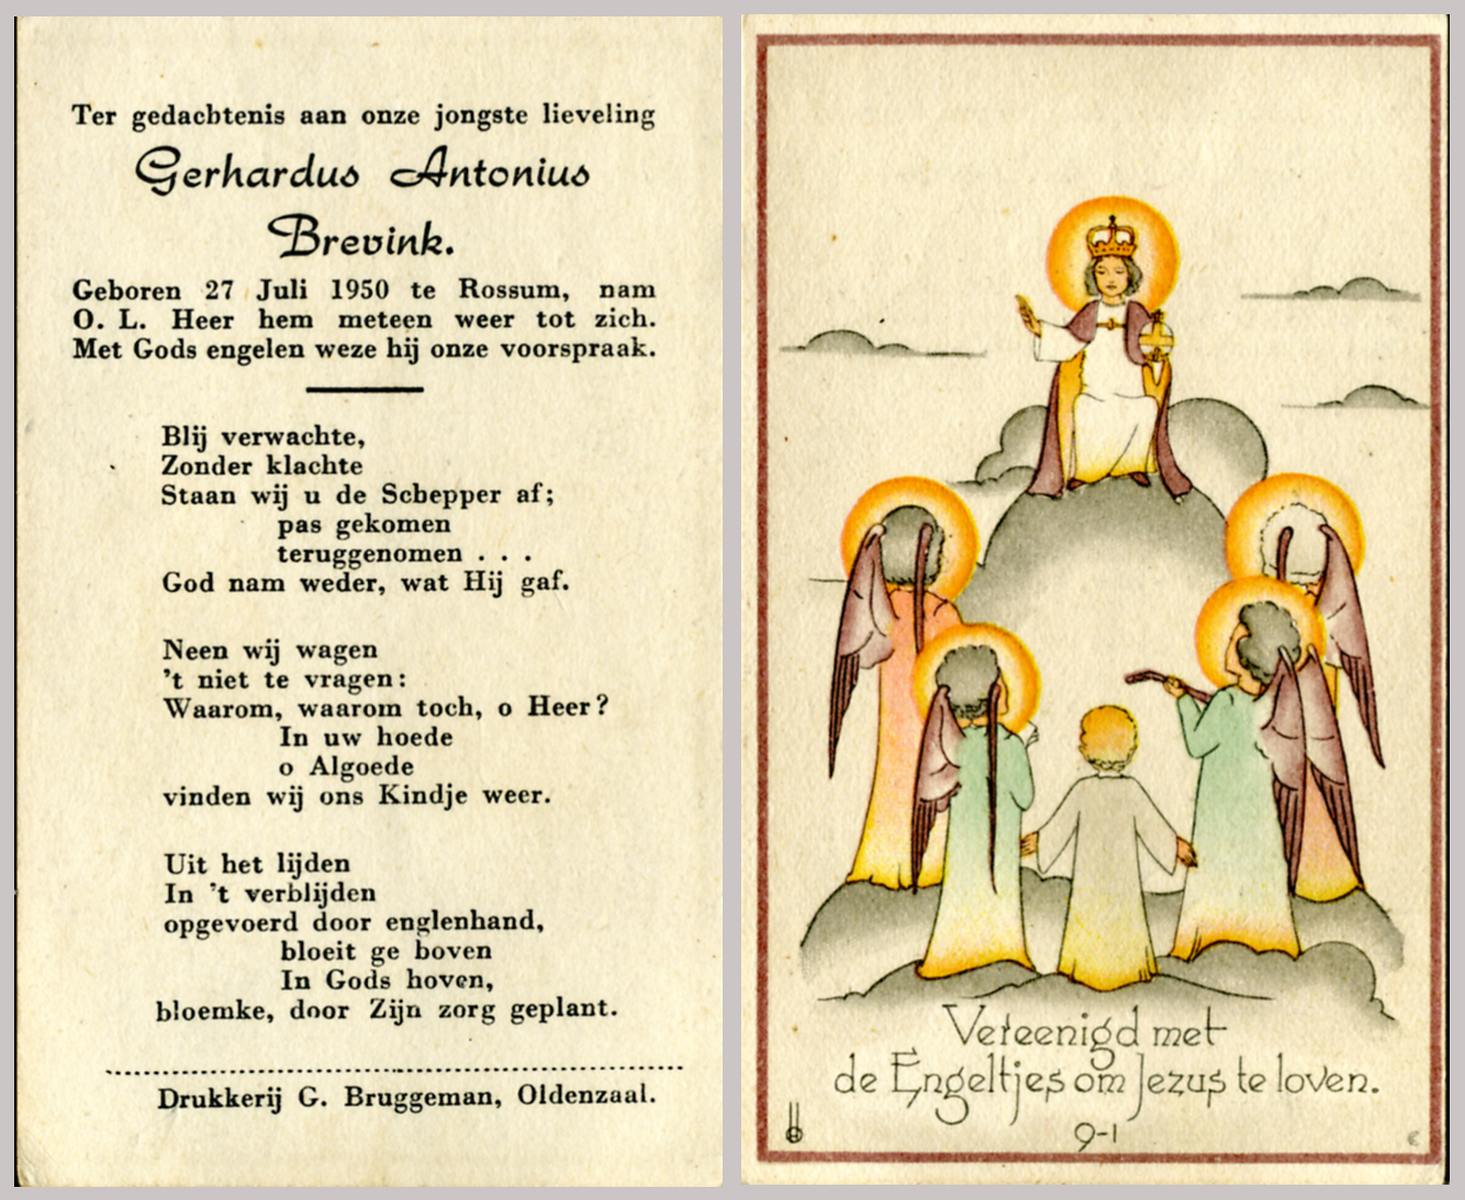 Ter gedachtenis aan onze jongste lieveling
Gerhardus Antonius
Brevink.
Geboren 27 Juli 1950 te Rossum, nam
O. L. Heer hem meteen weer tot zich.
Met Gods engelen weze hij onze voorspraak.
Blij verwachte,
Zonder klachte
Staan wij u de Schepper af;
pas gekomen
teruggenomen . . .
God nam weder, wat Hij gaf.
Neen wij wagen
't niet te vragen:
Waarom, waarom toch, o Heer?
In uw hoede
o Algoede
vinden wij ons Kindje weer.
Uit het lijden
In 't verblijden
opgevoerd door englenhand,
bloeit ge boven
In Gods hoven,
bloemke, door Zijn zorg geplant.
Drukkerij G. Bruggeman, Oldenzaal.
Vereenigd met
de Engeltjes om Jezus te loven.
9-1